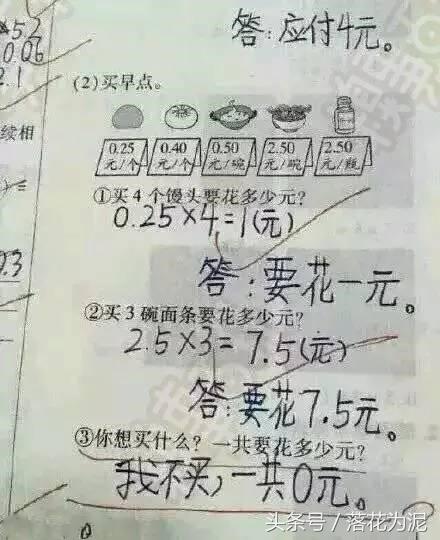 ×5.2
0.06
2.1
答:应付4元。
(2)买早点。
续相
0.25 元/个
0.40 元/个
0.50 元/碗
2.50 元/碗
2.50 元/瓶
①买4个馒头要花多少元?
0.25×4=1(元)
答:要花一元。
②买3碗面条要花多少元?
2.5×3=7.5(元)
答:要花7.5元。
③你想买什么?一共要花多少元?
我不买,一共0元。
头条号/落花为泥